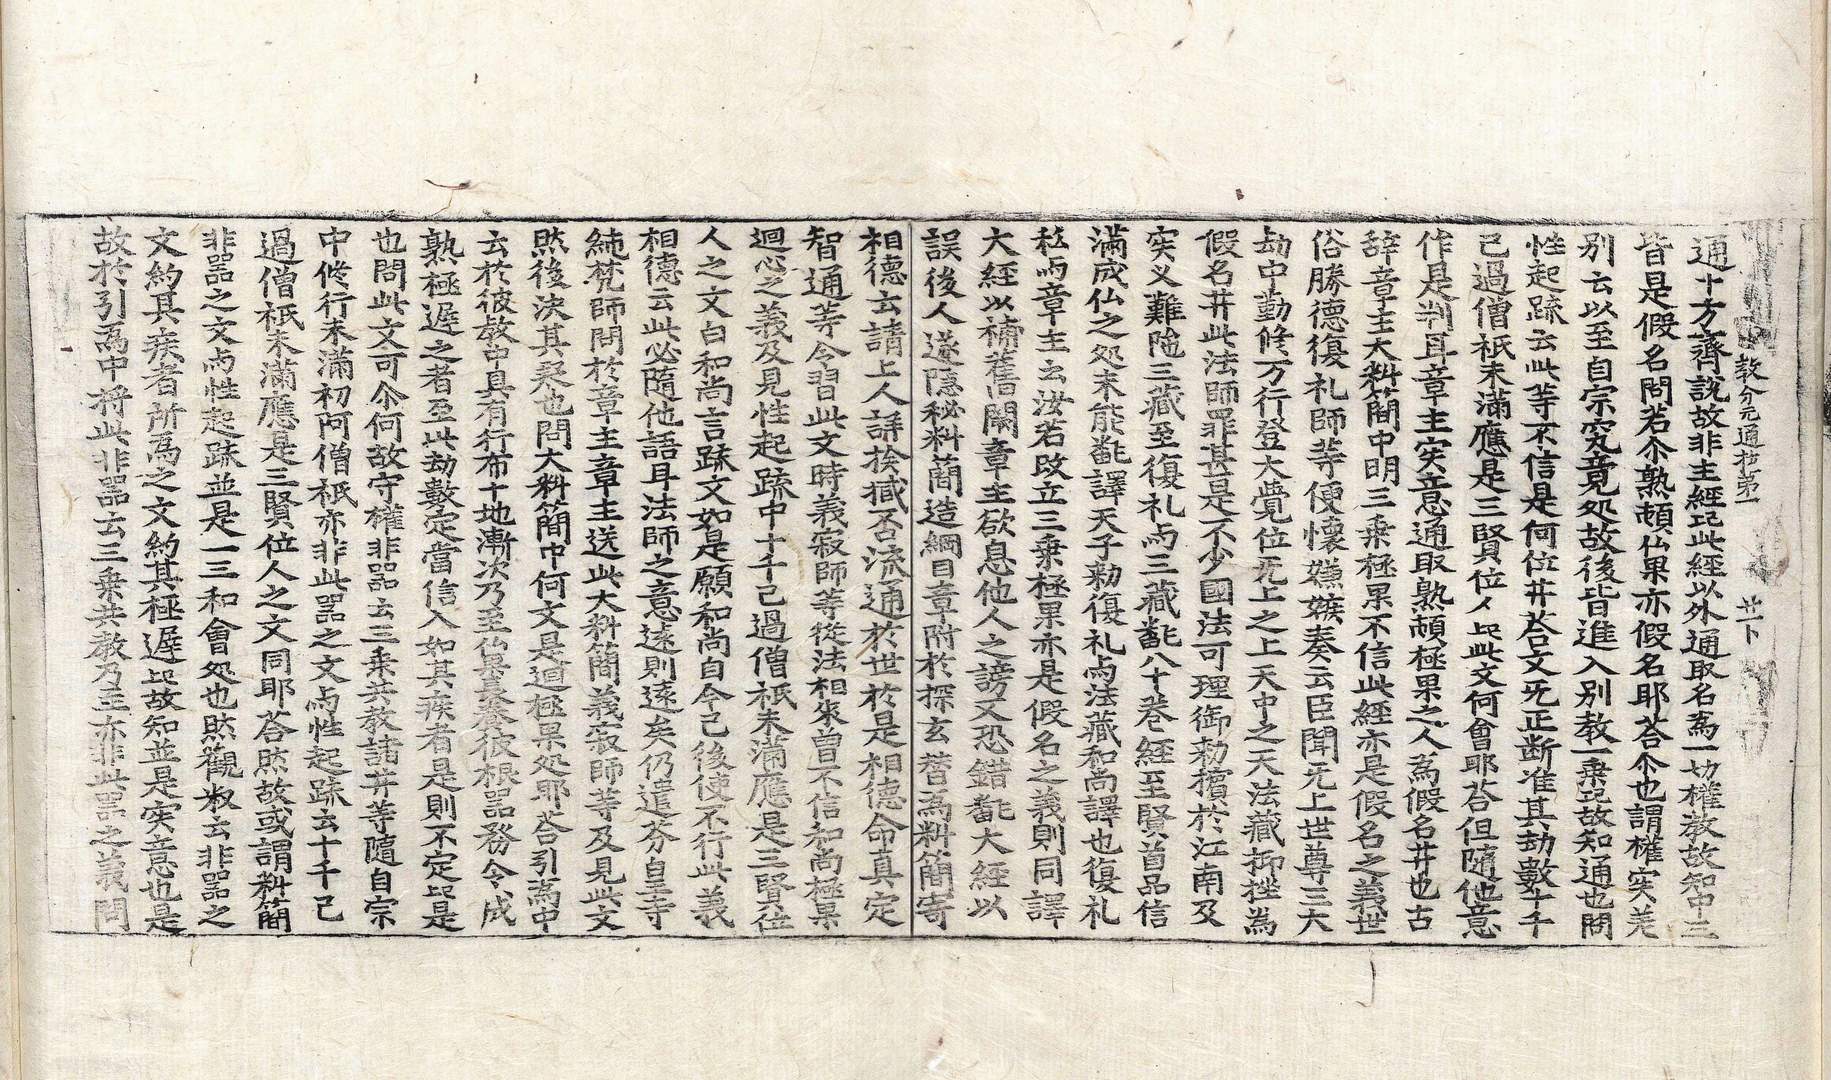 教分元通抄第一　廿一下
通十方齊說故非主經㫆此經以外通取名爲一切權教故知中三
皆是假名問若尒熟頓仏果亦假名耶荅尒也謂權实差
别云以至自宗究竟処故後皆進入别教一乗㫆故知通也問
性起䟽云此等不信是何位井荅文旣正断准其劫數十千
已過僧祇未滿應是三賢位人㫆此文何會耶荅但隨他意
作是判耳章主实意通取熟頓極果之人爲假名井也古
辞章主大料簡中明三乗極果不信此經亦是假名之義世
俗勝德復礼師等便懷嫌嫉奏云臣聞无上世尊三大
劫中勤修万行登大覺位无上之上天中之天法藏抑挫爲
假名井此法師罪甚是不少國法可理御勑擯於江南及
实叉難陁三藏至復礼与三藏飜八十卷經至賢首品信
滿成仏之処未能飜譯天子勑復礼与法藏和尚譯也復礼
私与章主云汝若改立三乗極果亦是假名之義則同譯
大經以補舊闕章主欲息他人之謗又恐錯飜大經以
誤後人遂隱秘料簡造綱目章附於探玄替爲料簡寄
相德云請上人詳挨臧否流通於世於是相德命真定
智通等令習此文時義寂師等從法相來曽不信和尚極果
迴心之義及見性起䟽中十千已過僧祇未滿應是三賢位
人之文白和尚言䟽文如是願和尚自今已後使不行此義
相德云此必隨他語耳法師之意遠則遠矣仍遣芬皇寺
純梵師問於章主章主送此大料簡義寂師等及見此文
然後決其疑也問大料簡中何文是迴極果処耶荅引爲中
云於彼教中具有行布十地漸次乃至仏果長養彼根器務令成
熟極遲之者至此劫數定當信入如其疾者是則不定㫆是
也問此文可尒何故守權非器云三乗共教諸井等隨自宗
中修行未滿初阿僧祇亦非此器之文与性起䟽云十千已
過僧祇未滿應是三賢位人之文同耶荅然故或謂料簡
非器之文与性起䟽並是一三和會処也然觀叔云非器之
文約其疾者所爲之文約其極遲㫆故知並是实意也是
故於引爲中將此非器云三乗共教乃至亦非此器之義問